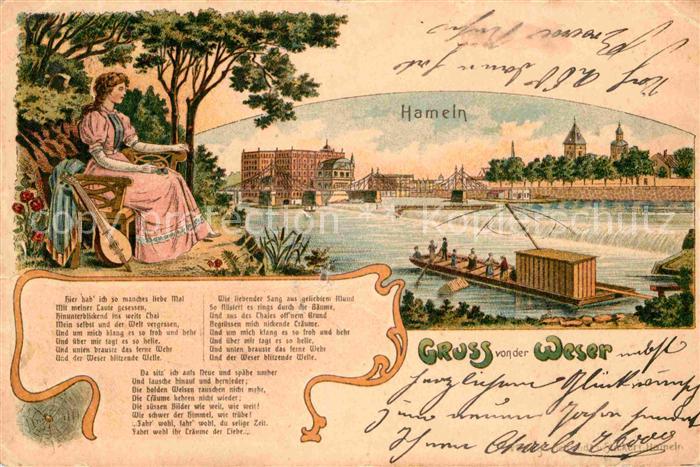 Hameln
Hier hab' ich so manches liebe Mal
Mit meiner Laute gesessen,
Hinunterblickend ins weite Thal
Mein selbst und der Welt vergessen,
Und um mich klang es so froh und hehr
Und über mir tagt es so helle,
Und unten brauste das ferne Wehr
Und der Weser blitzende Welle.
Wie liebender Sang aus geliebtem Mund
So flüstert es rings durch die Bäume,
Und aus des Thales off'nen Grund
Begrüssen mich nickende Träume.
Und um mich klang es so froh und hehr
Und über mir tagt es so helle,
Und unten brauste das ferne Wehr
Und der Weser blitzende Welle.
Da sitz' ich aufs Neue und spähe umher
Und lausche hinauf und hernieder;
Die holden Weisen rauschen nicht mehr,
Die Träume kehren nicht wieder;
Die süssen Bilder wie weit, wie weit!
Wie schwer der Himmel, wie trübe!
„Fahr' wohl, fahr' wohl, du selige Zeit.
Fahrt wohl ihr Träume der Liebe.„
Gruss von der Weser nebst
herzlichem Glückwunsch
zum neuen Jahre sendet
Ihnen Charles
Hameln
copyright protection / Kopierschutz